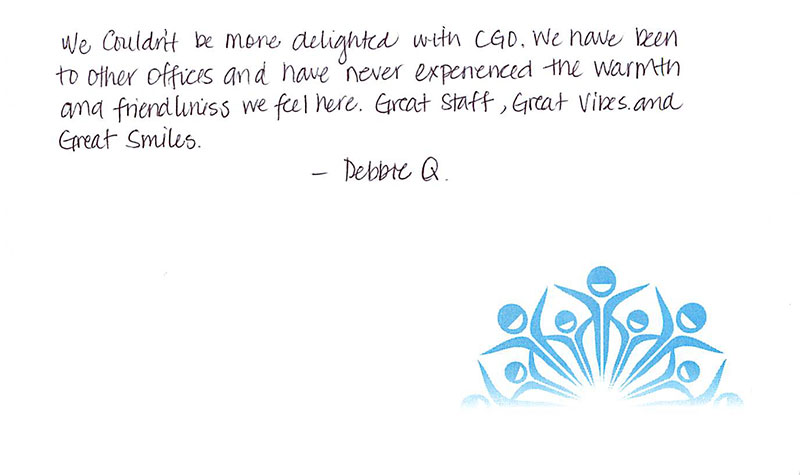 We Couldn't be more delighted with CGO. We have been
to other offices and have never experienced the warmth
and friendliniss we feel here. Great Staff, Great Vibes. and
Great Smiles.
– Debbie Q.